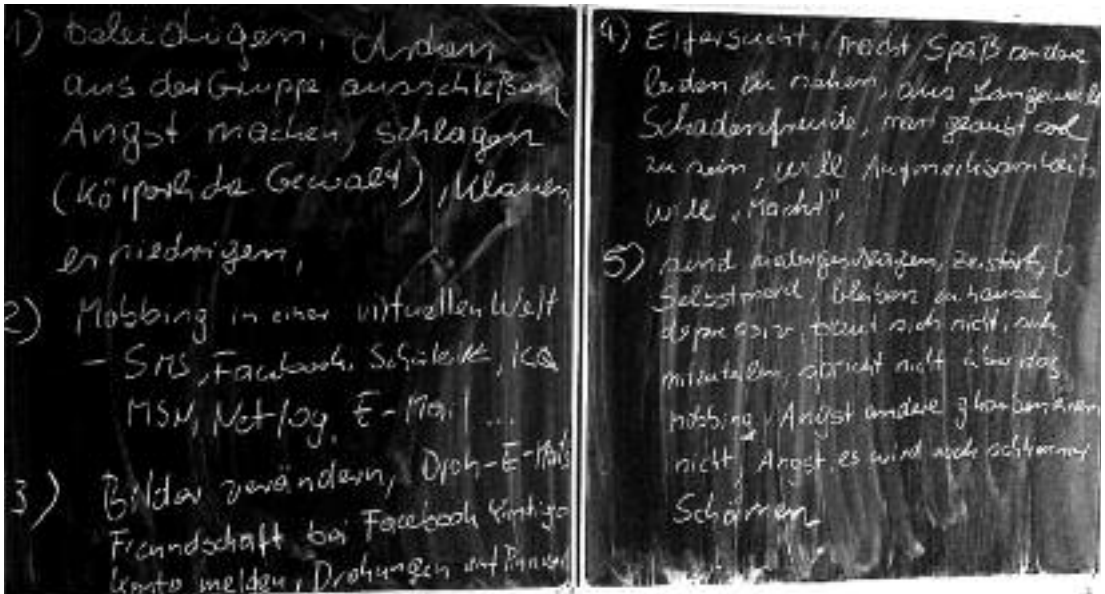 1) beleidigen,
aus der Gruppe ausschließen
Angst machen, schlagen
(körperliche Gewalt), klauen,
erniedrigen,
2) Mobbing in einer virtuellen Welt
- SMS, Facebook, ICQ
MSN, Netlog, E-Mail ...
3) Bilder verändern, Droh-E-Mails
Freundschaft bei Facebook
melden, Drohungen auf
4) Eifersucht, macht Spaß andere
leiden zu sehen, aus Langeweile
Schadenfreude, man glaubt cool
zu sein, will Aufmerksamkeit
will "Macht",
5) sind niedergeschlagen,
Selbstmord, bleiben zuhause,
depressiv, traut sich nicht, sich
mitzuteilen, spricht nicht über das
Mobbing, Angst andere glauben einem
nicht, Angst es wird noch schlimmer
Schämen